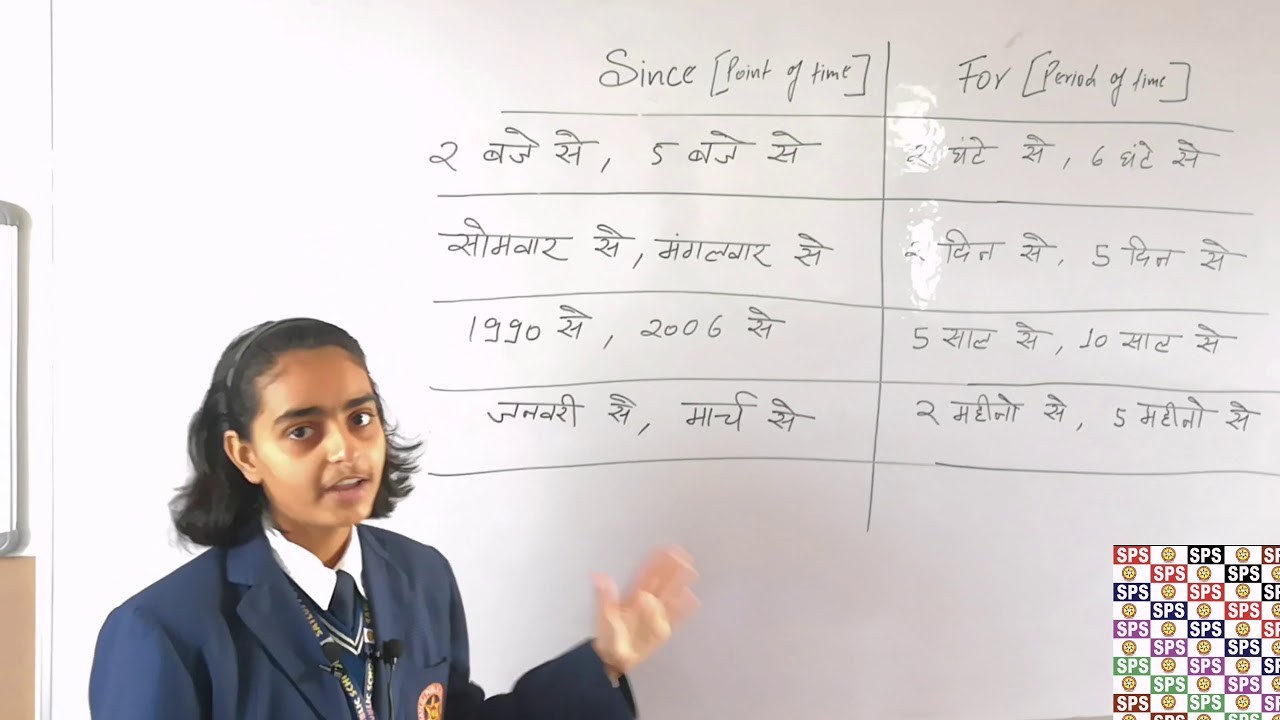 Since [Point of time] For [Period of time]
२ बजे से, 5 बजे से २ घंटे से, 6 घंटे से
सोमवार से, मंगलवार से २ दिन से, 5 दिन से
1990 से, २००6 से 5 साल से, 10 साल से
जनवरी से, मार्च से २ महीनो से, 5 महीनो से
SPS SPS
SPS SPS
SPS SPS
SPS SPS
SPS SPS
SPS SPS
SPS SPS
SPS SPS
SPS SPS